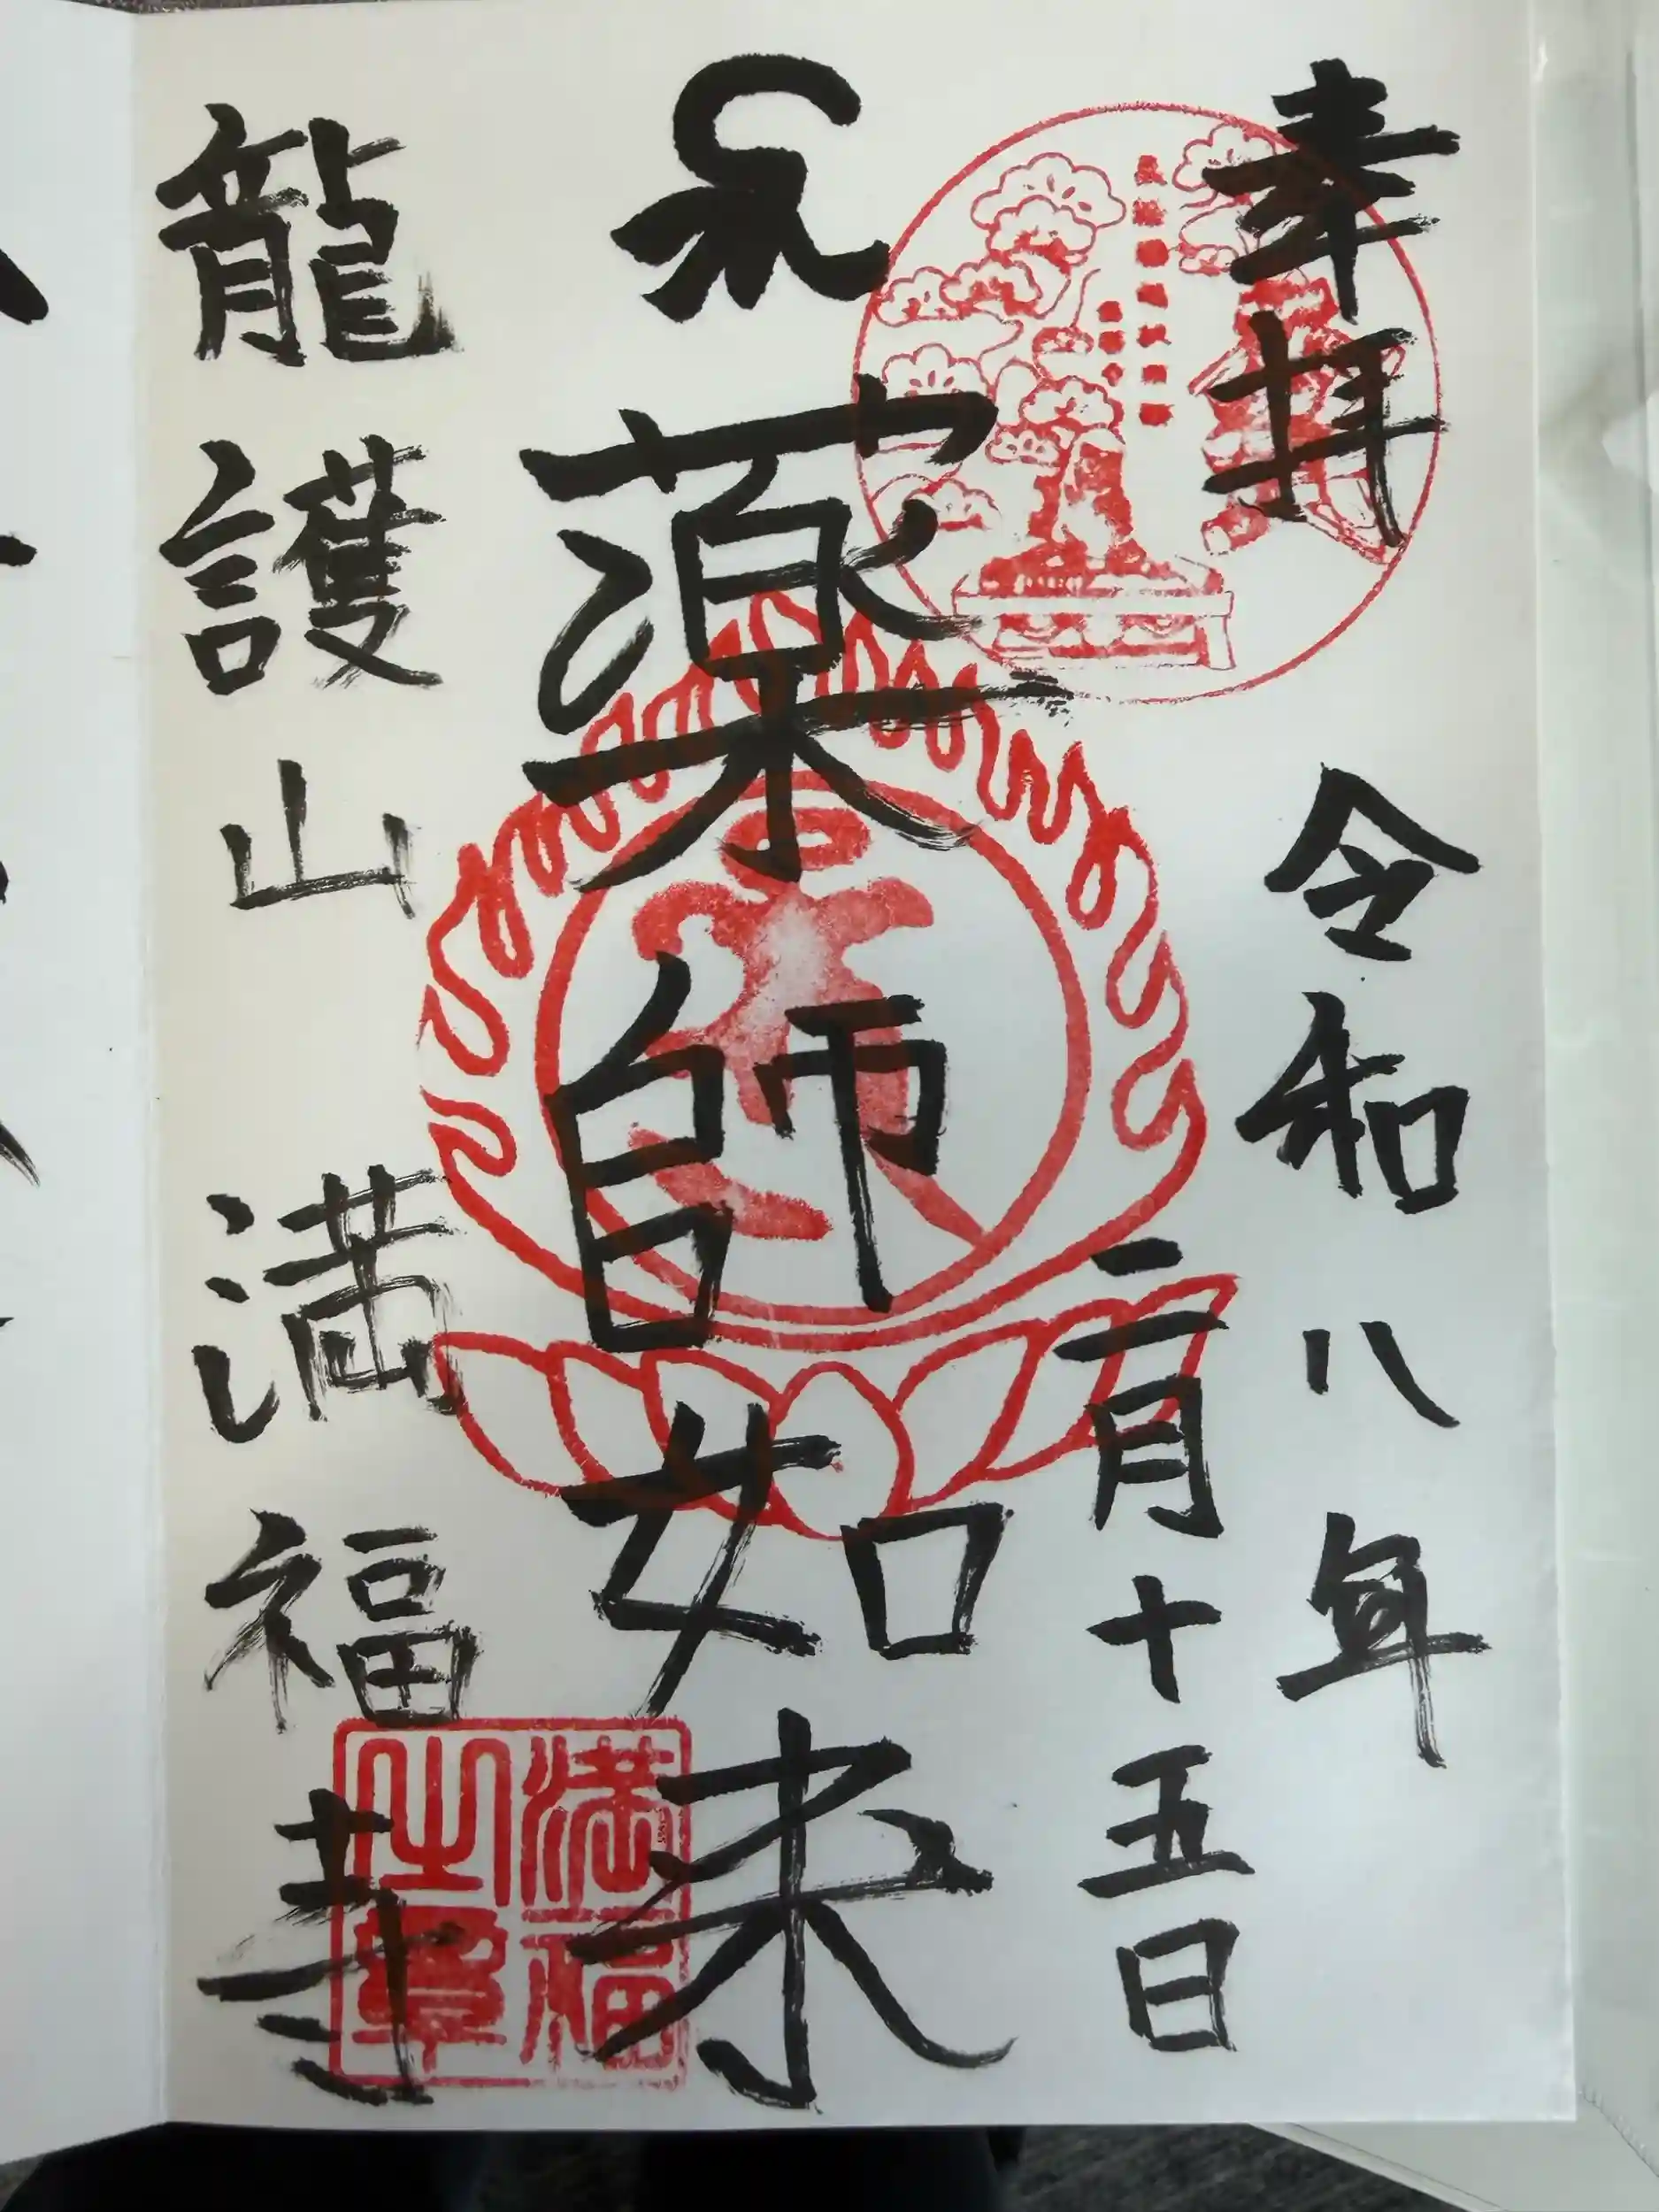 奉拝
令和八年
二月十五日
薬師如来
龍護山
満福寺
満福
之章